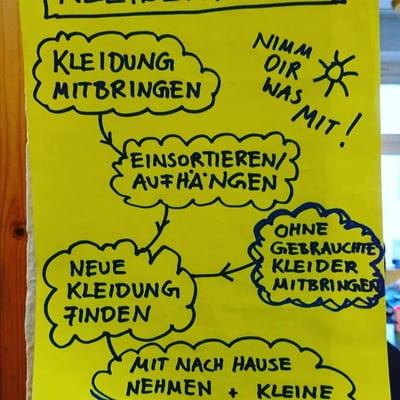 KLEIDUNG
MITBRINGEN
NIMM
DIR
WAS
MIT!
EINSORTIEREN/
AUFHÄNGEN
OHNE
GEBRAUCHTE
KLEIDER
MITBRINGEN
NEUE
KLEIDUNG
FINDEN
MIT NACH HAUSE
NEHMEN + KLEINE